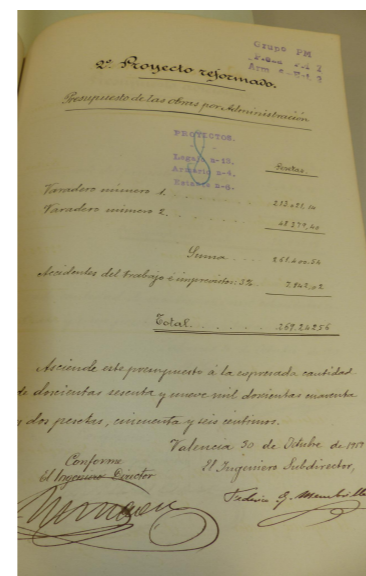 Grupo PM
2º Proyecto reformado.
Presupuesto de las obras por Administración
PROYECTOS.
Legajo n-13.
Armario n-4.
Estante n-6.
Pesetas
Varadero número 1.
Varadero número 2.
48.379,40
Suma
261.400,54
Accidentes del trabajo e imprevistos: 3%
7.842,02
Total.
269.242,56
Asciende este presupuesto á la expresada cantidad
de doscientas sesenta y nueve mil doscientas cuarenta
y dos pesetas, cincuenta y seis céntimos.
Valencia 30 de Octubre de
Conforme
El Ingeniero Director
El Ingeniero Subdirector,